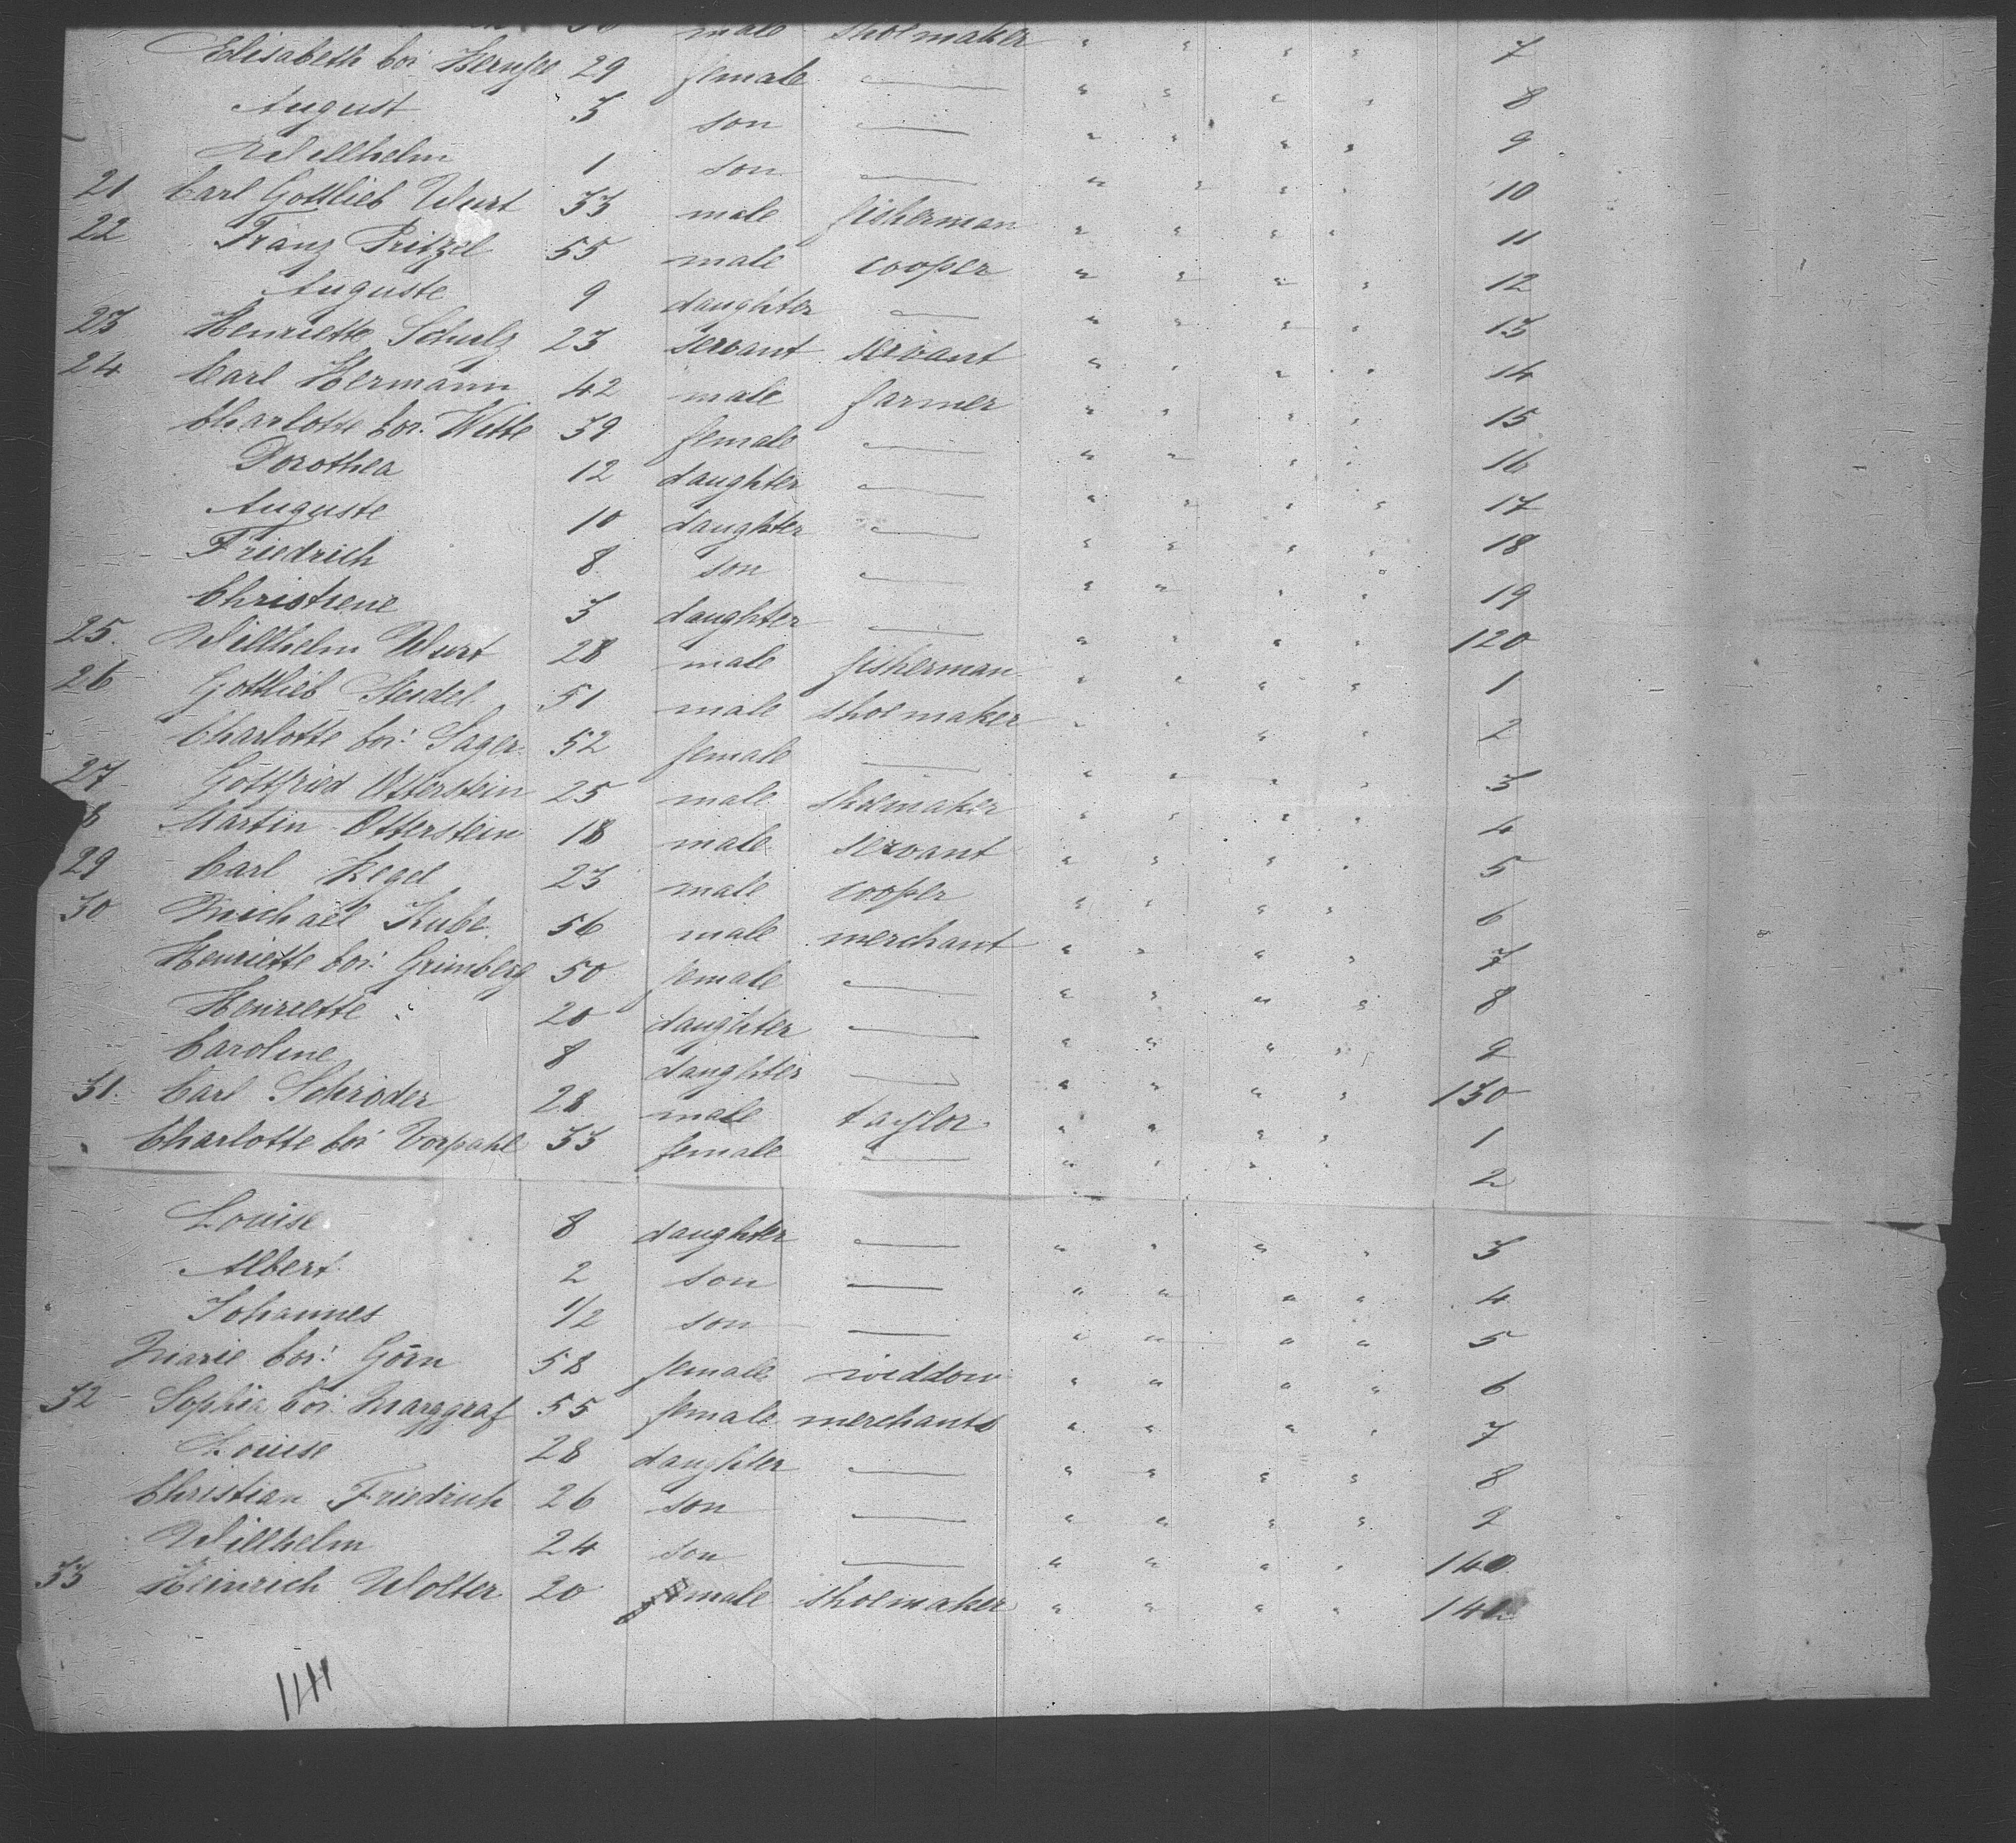 male shoemaker " " " " 7
Elisabeth bor: 29 female — " " " " 8
August 3 son — " " " " 9
Willhelm 1 son — " " " " 10
21 Carl Gottlieb Wurt 33 male fisherman " " " " 11
22 Franz Pritzel 55 male cooper " " " " 12
Auguste 9 daughter — " " " " 13
23 Henriette Schulz 23 servant servant " " " " 14
24 Carl Hermann 42 male farmer " " " " 15
Charlotte bor. Witte 39 female — " " " " 16
Dorothea 12 daughter — " " " " 17
Auguste 10 daughter — " " " " 18
Friedrich 8 son — " " " " 19
Christiene 3 daughter — " " " " 120
25. Willhelm Wurt 28 male fisherman " " " " 1
26 Gottlieb Steidel 51 male shoemaker " " " " 2
Charlotte bor: Sager 52 female — " " " " 3
27 Gottfried Otterstein 25 male shoemaker " " " " 4
8 Martin Otterstein 18 male servant " " " " 5
29 Carl Kegel 23 male cooper " " " " 6
30 Michael Kube 56 male merchant " " " " 7
Henriette bor: Grimberg 50 female — " " " " 8
Henriette 20 daughter — " " " " 9
Caroline 8 daughter — " " " " 130
31. Carl Schröder 28 male taylor " " " " 1
Charlotte bor: Vorpahl 33 female — " " " " 2
Louise 8 daughter — " " " " 3
Albert 2 son — " " " " 4
Johannes 1/2 son — " " " " 5
Marie bor: Görn 58 female widdow " " " " 6
32 Sophia bor: Marggraf 55 female merchants " " " " 7
Louise 28 daughter — " " " " 8
Christian Friedrich 26 son — " " " " 9
Willhelm 24 son — " " " " 140
33 Heinrich Wolter 20 male shoemaker " " " " 141
1141